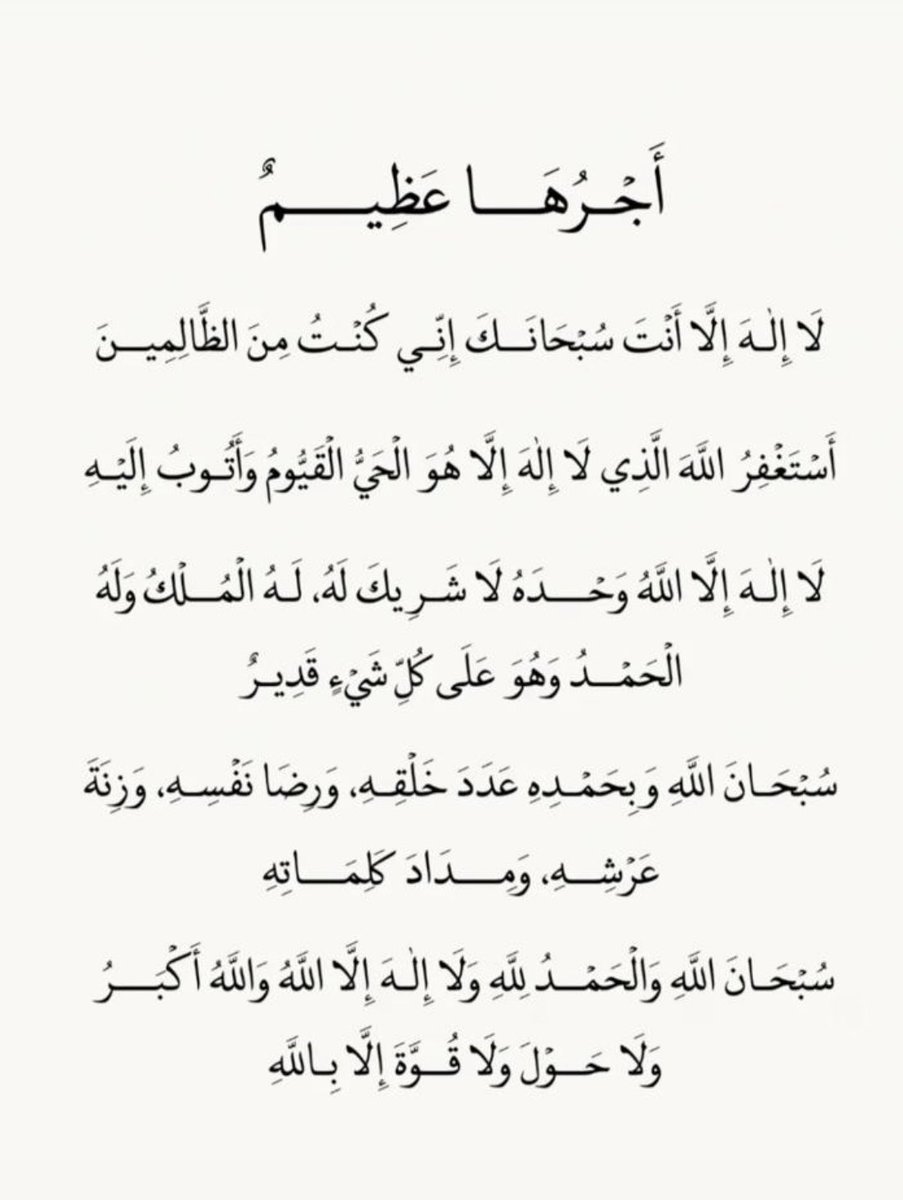 أَجْرُهَا عَظِيمٌ
لَا إِلٰهَ إِلَّا أَنْتَ سُبْحَانَكَ إِنِّي كُنْتُ مِنَ الظَّالِمِينَ
أَسْتَغْفِرُ اللَّهَ الَّذِي لَا إِلٰهَ إِلَّا هُوَ الْحَيُّ الْقَيُّومُ وَأَتُوبُ إِلَيْهِ
لَا إِلٰهَ إِلَّا اللَّهُ وَحْدَهُ لَا شَرِيكَ لَهُ، لَهُ الْمُلْكُ وَلَهُ
الْحَمْدُ وَهُوَ عَلَى كُلِّ شَيْءٍ قَدِيرٌ
سُبْحَانَ اللَّهِ وَبِحَمْدِهِ عَدَدَ خَلْقِهِ، وَرِضَا نَفْسِهِ، وَزِنَةَ
عَرْشِهِ، وَمِدَادَ كَلِمَاتِهِ
سُبْحَانَ اللَّهِ وَالْحَمْدُ لِلَّهِ وَلَا إِلٰهَ إِلَّا اللَّهُ وَاللَّهُ أَكْبَرُ
وَلَا حَوْلَ وَلَا قُوَّةَ إِلَّا بِاللَّهِ